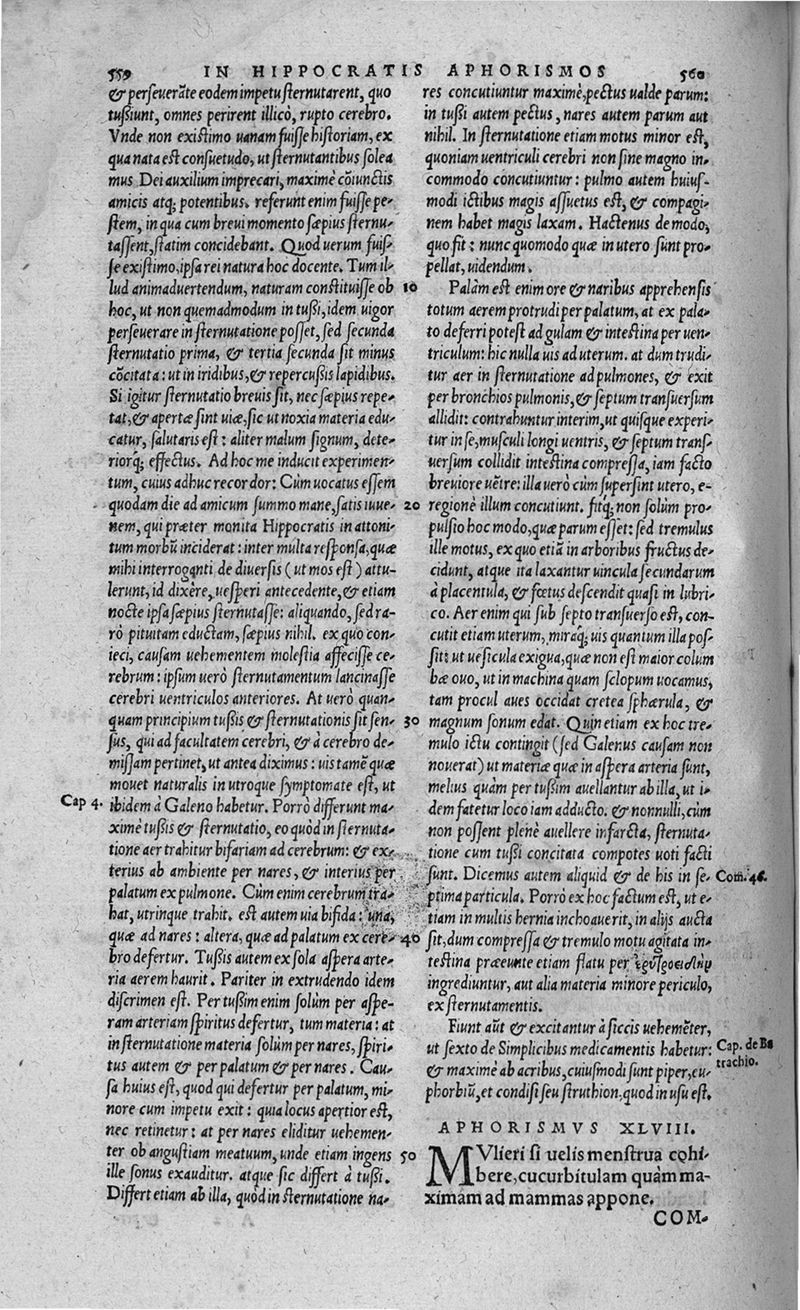 559 IN HIPPOCRATIS APHORISMOS 560
& perseuerãte eodem impetu sternutarent, quo
tußiunt, omnes perirent illicò, rupto cerebro.
Vnde non existimo uanam fuisse historiam, ex
qua nata est consuetudo, ut sternutantibus solea
mus Dei auxilium imprecari, maximè cõiunctis
amicis atq; potentibus. referunt enim fuisse pe-
stem, in qua cum breui momento sæpius sternu-
tassent, statim concidebant. Quod uerum fuis-
se existimo, ipsa rei natura hoc docente. Tum il-
lud animaduertendum, naturam constituisse ob
hoc, ut non quemadmodum in tußi, idem uigor
perseuerare in sternutatione posset, sed secunda
sternutatio prima, & tertia secunda sit minus
cõcitata: ut in iridibus, & repercußis lapidibus.
Si igitur sternutatio breuis sit, nec sæpius repe-
tat, & apertæ sint uiæ, sic ut noxia materia edu-
catur, salutaris est: aliter malum signum, dete-
riorq; effectus. Ad hoc me inducit experimen-
tum, cuius adhuc recordor: Cùm uocatus essem
quodam die ad amicum summo mane, satis iuue-
nem, qui præter monita Hippocratis in attoni-
tum morbũ inciderat: inter multa responsa, quæ
mihi interroganti de diuersis (ut mos est) attu-
lerunt, id dixêre, uesperi antecedente, & etiam
nocte ipsa sæpius sternutasse: aliquando, sed ra-
rò pituitam eductam, sæpius nihil. ex quo con-
ieci, causam uehementem molestia affecisse ce-
rebrum: ipsum uerò sternutamentum lancinasse
cerebri uentriculos anteriores. At uerò quan-
quam principium tußis & sternutationis sit sen-
sus, qui ad facultatem cerebri, & à cerebro de-
missam pertinet, ut antea diximus: uis tamẽ quæ
mouet naturalis in utroque symptomate est, ut
Cap 4. ibidem à Galeno habetur. Porrò differunt ma-
ximè tußis & sternutatio, eo quòd in sternuta-
tione aer trahitur bifariam ad cerebrum: & ex-
terius ab ambiente per nares, & interius per
palatum ex pulmone. Cùm enim cerebrum tra-
hat, utrinque trahit. est autem uia bifida: una,
quæ ad nares: altera, quæ ad palatum ex cere-
bro defertur. Tußis autem ex sola aspera arte-
ria aerem haurit. Pariter in extrudendo idem
discrimen est. Per tußim enim solùm per aspe-
ram arteriam spiritus defertur, tum materia: at
in sternutatione materia solùm per nares, spiri-
tus autem & per palatum & per nares. Cau-
sa huius est, quod qui defertur per palatum, mi-
nore cum impetu exit: quia locus apertior est,
nec retinetur: at per nares eliditur uehemen-
ter ob angustiam meatuum, unde etiam ingens
ille sonus exauditur. atque sic differt à tußi.
Differt etiam ab illa, quòd in sternutatione na-
res concutiuntur maximè, pectus ualde parum:
in tußi autem pectus, nares autem parum aut
nihil. In sternutatione etiam motus minor est,
quoniam uentriculi cerebri non sine magno in-
commodo concutiuntur: pulmo autem huius-
modi ictibus magis assuetus est, & compagi-
nem habet magis laxam. Hactenus de modo,
quo fit: nunc quomodo quæ in utero sunt pro-
pellat, uidendum.
10 Palàm est enim ore & naribus apprehensis
totum aerem protrudi per palatum, at ex pala-
to deferri potest ad gulam & intestina per uen-
triculum: hic nulla uis ad uterum. at dum trudi-
tur aer in sternutatione ad pulmones, & exit
per bronchios pulmonis, & septum transuersum
allidit: contrahuntur interim, ut quisque experi-
tur in se, musculi longi uentris, & septum trans-
uersum collidit intestina compressa, iam facto
breuiore uẽtre: illa uerò cùm supersint utero, e-
20 regionè illum concutiunt. fitq; non solùm pro-
pulsio hoc modo, quæ parum esset: sed tremulus
ille motus, ex quo etiã in arboribus fructus de-
cidunt, atque ita laxantur uincula secundarum
à placentula, & fœtus descendit quasi in lubri-
co. Aer enim qui sub septo transuerso est, con-
cutit etiam uterum, miraq; uis quantum illa pos-
sit: ut uesicula exigua, quæ non est maior colum
bæ ouo, ut in machina quam sclopum uocamus,
tam procul aues occidat cretea sphærula, &
30 magnum sonum edat. Quin etiam ex hoc tre-
mulo ictu contingit (sed Galenus causam non
nouerat) ut materiæ quæ in aspera arteria sunt,
melius quàm per tußim auellantur ab illa, ut i-
dem fatetur loco iam adducto. & nonnulli, cùm
non possent plenè auellere infarcta, sternuta-
tione cum tußi concitata compotes uoti facti
sunt. Dicemus autem aliquid & de his in se- Com. 46.
ptima particula. Porrò ex hoc factum est, ut e-
tiam in multis hernia inchoauerit, in alijs aucta
40 sit, dum compressa & tremulo motu agitata in-
testina præeunte etiam flatu per
ingrediuntur, aut alia materia minore periculo,
ex sternutamentis.
Fiunt aũt & excitantur à siccis uehemẽter,
ut sexto de Simplicibus medicamentis habetur: Cap. de Ba
trachio.
& maximè ab acribus, cuiusmodi sunt piper, eu-
phorbiũ, et condisi seu struthion, quod in usu est.
APHORISMVS XLVIII.
50 MVlieri si uelis menstrua cohi-
bere, cucurbitulam quàm ma-
ximam ad mammas appone.
COM-